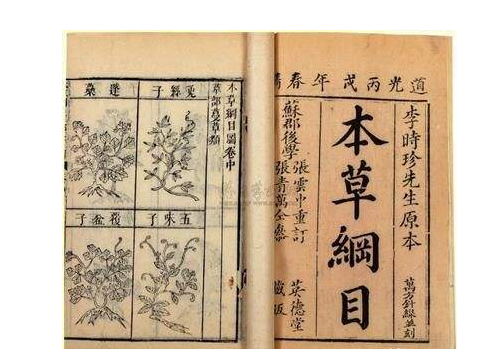 道光丙戌年春
李時珍先生原本
萬方針線並刻
本草綱目
蘇郡後學
張雲中重訂
張青萬全
英德堂
藏板
本草綱目圖卷中
草部蔓草類
菟絲子
五味子
蓬蘽
覆盆子